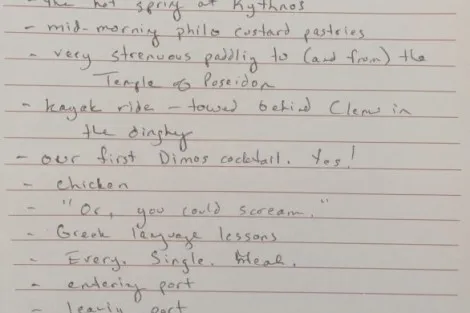 - the hot spring at Kythnos
- mid-morning philo custard pastries
- very strenuous paddlig to (and from) the
Temple of Poseidon
- kayak ride - towed behind Clem in
the dinghy
- our first Dimos cocktail. Yes!
- chicken
- "Or, you could scream."
- Greek language lessons
- Every. Single. Meal.
- entering port
- port